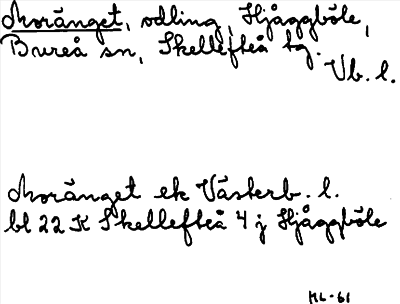 Moränget, odling, Hjåggböle,
Bureå sn, Skellefteå tg.
Vb. l.
Moränget ek Västerb. l.
bl 22 K Skellefteå 4 j Hjåggböle
ML-61